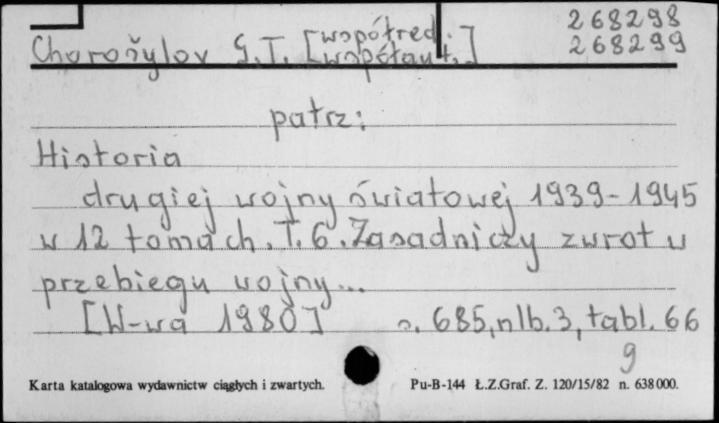 268298
Chorošylov G.T. [współred. i współaut.] 268299
patrz:
Historia
drugiej wojny światowej 1939-1945
w 12 tomach. T. 6. Zasadniczy zwrot w
przebiegu wojny...
[W-wa 1980] s. 685, nlb. 3, tabl. 66
g
Karta katalogowa wydawnictw ciągłych i zwartych. Pu-B-144 Ł.Z.Graf. Z. 120/15/82 n. 638000.